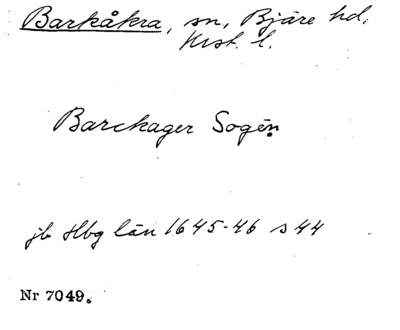 Barkåkra, sn, Bjäre hd,
Krist. l.
Barckager Sogen
jb Hbg län 1645-46 s 44
Nr 7049.